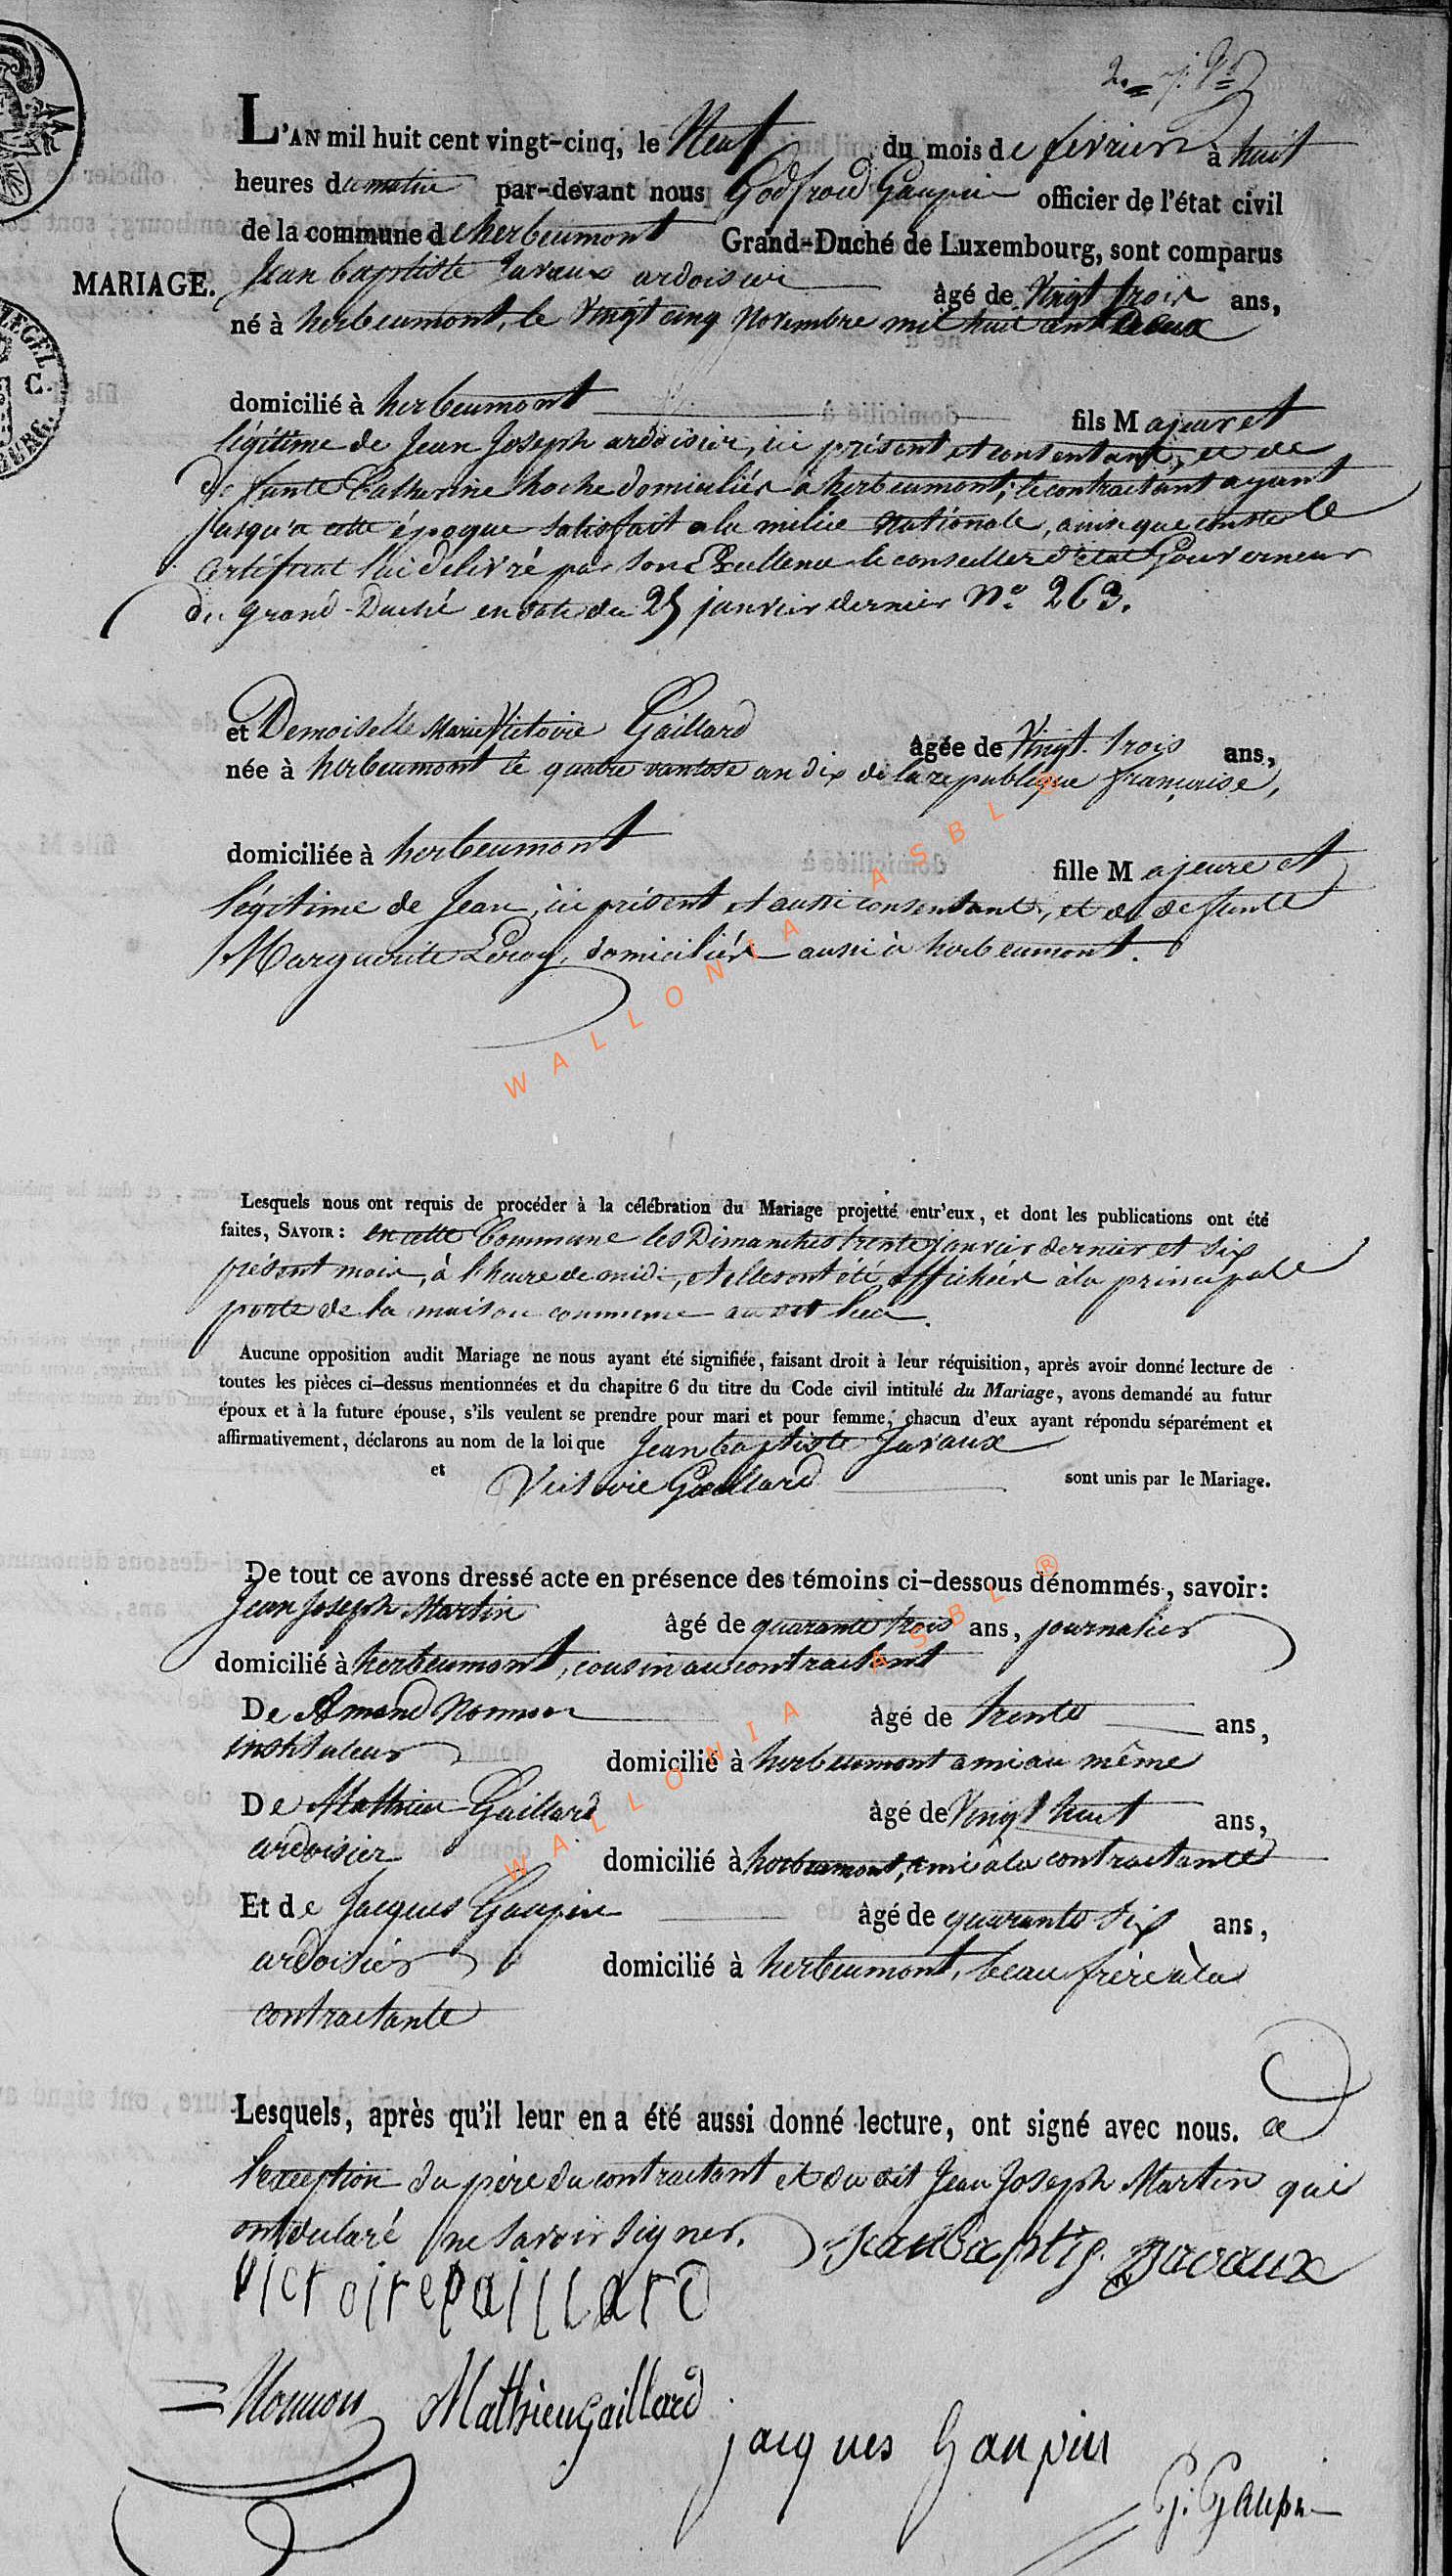 2.
L'AN mil huit cent vingt-cinq, le Neuf du mois de fevrier à huit
heures du matin par-devant nous Godfroid Gaupin officier de l'état civil
de la commune d'herbeumont Grand-Duché de Luxembourg, sont comparus
MARIAGE.
Jean baptiste Javaux ardoisier âgé de Vingt trois ans,
né à herbeumont, le Vingt cinq Novembre mil huit cent Deux
domicilié à herbeumont fils Majeur et
légitime de Jean Joseph ardoisier, ici présent et consentant, et de
de funte Catherine hoche domiciliés à herbeumont; le contractant ayant
jusqu'a cette époque satisfait a la milice Nationale, ainsi que conste le
Certificat lui delivré par Son Excellence le conseiller d'état Gouverneur
du grand-Duché en date du 25 janvier dernier N° 263.
et Demoiselle Marie Victoire Gaillard âgée de Vingt-trois ans,
née à herbeumont le quatre vantose an dix de la republique française,
domiciliée à herbeumont fille Majeure et
légitime de Jean, ici présent et aussi consentant, et de defunte
Marguerite Leroy, domiciliés aussi à herbeumont.
WALLONIA ASBL ®
Lesquels nous ont requis de procéder à la célébration du Mariage projetté entr'eux, et dont les publications ont été
faites, SAVOIR: en cette Commune les Dimanches trente janvier dernier et six
présent mois, à l'heure de midi, et elles ont été affichées à la principale
porte de la maison commune au dit lieu.
Aucune opposition audit Mariage ne nous ayant été signifiée, faisant droit à leur réquisition, après avoir donné lecture de
toutes les pièces ci-dessus mentionnées et du chapitre 6 du titre du Code civil intitulé du Mariage, avons demandé au futur
époux et à la future épouse, s'ils veulent se prendre pour mari et pour femme, chacun d'eux ayant répondu séparément et
affirmativement, déclarons au nom de la loi que Jean baptiste Javaux
et Victoire Gaillard sont unis par le Mariage.
De tout ce avons dressé acte en présence des témoins ci-dessous dénommés, savoir:
Jean Joseph Martin âgé de quarante trois ans, journalier
domicilié à herbeumont, cousin au contractant
De Amand Nonnon âgé de trente ans,
instituteur domicilié à herbeumont ami au même
De Mathieu Gaillard âgé de Vingt huit ans,
ardoisier domicilié à herbeumont, ami a la contractante
Et de Jacques Gaupin âgé de quarante six ans,
ardoisier domicilié à herbeumont, beau frère à la
contractante
WALLONIA ASBL ®
Lesquels, après qu'il leur en a été aussi donné lecture, ont signé avec nous. a
l'exception du père du contractant et du dit Jean Joseph Martin qui
ont declaré ne savoir signer. Jean Baptis. Javaux
Victoire gaillard
Nonnon Mathieu Gaillard
jacques Gaupin
G. Gaupin